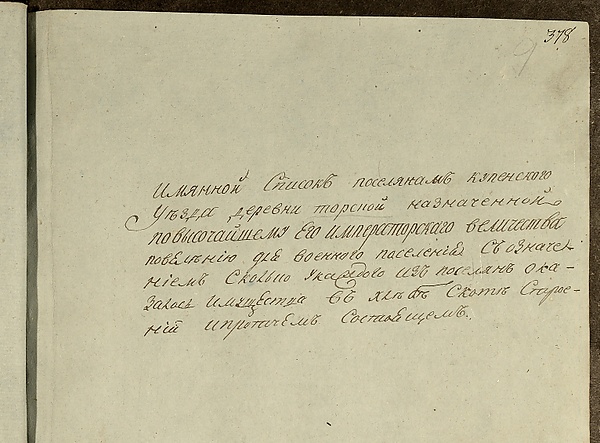 378
Имянной Списокъ поселянамъ купенского
Уѣзда деревни торской назначенной
по высочайшему Его императорского величества
повелѣнію для военного поселенія Съ означе-
ніемъ Сколько укаждого изъ поселян ока-
залось имущества въ хлѣбѣ Скотѣ Строе-
ній ипротчемъ Состоящемъ.